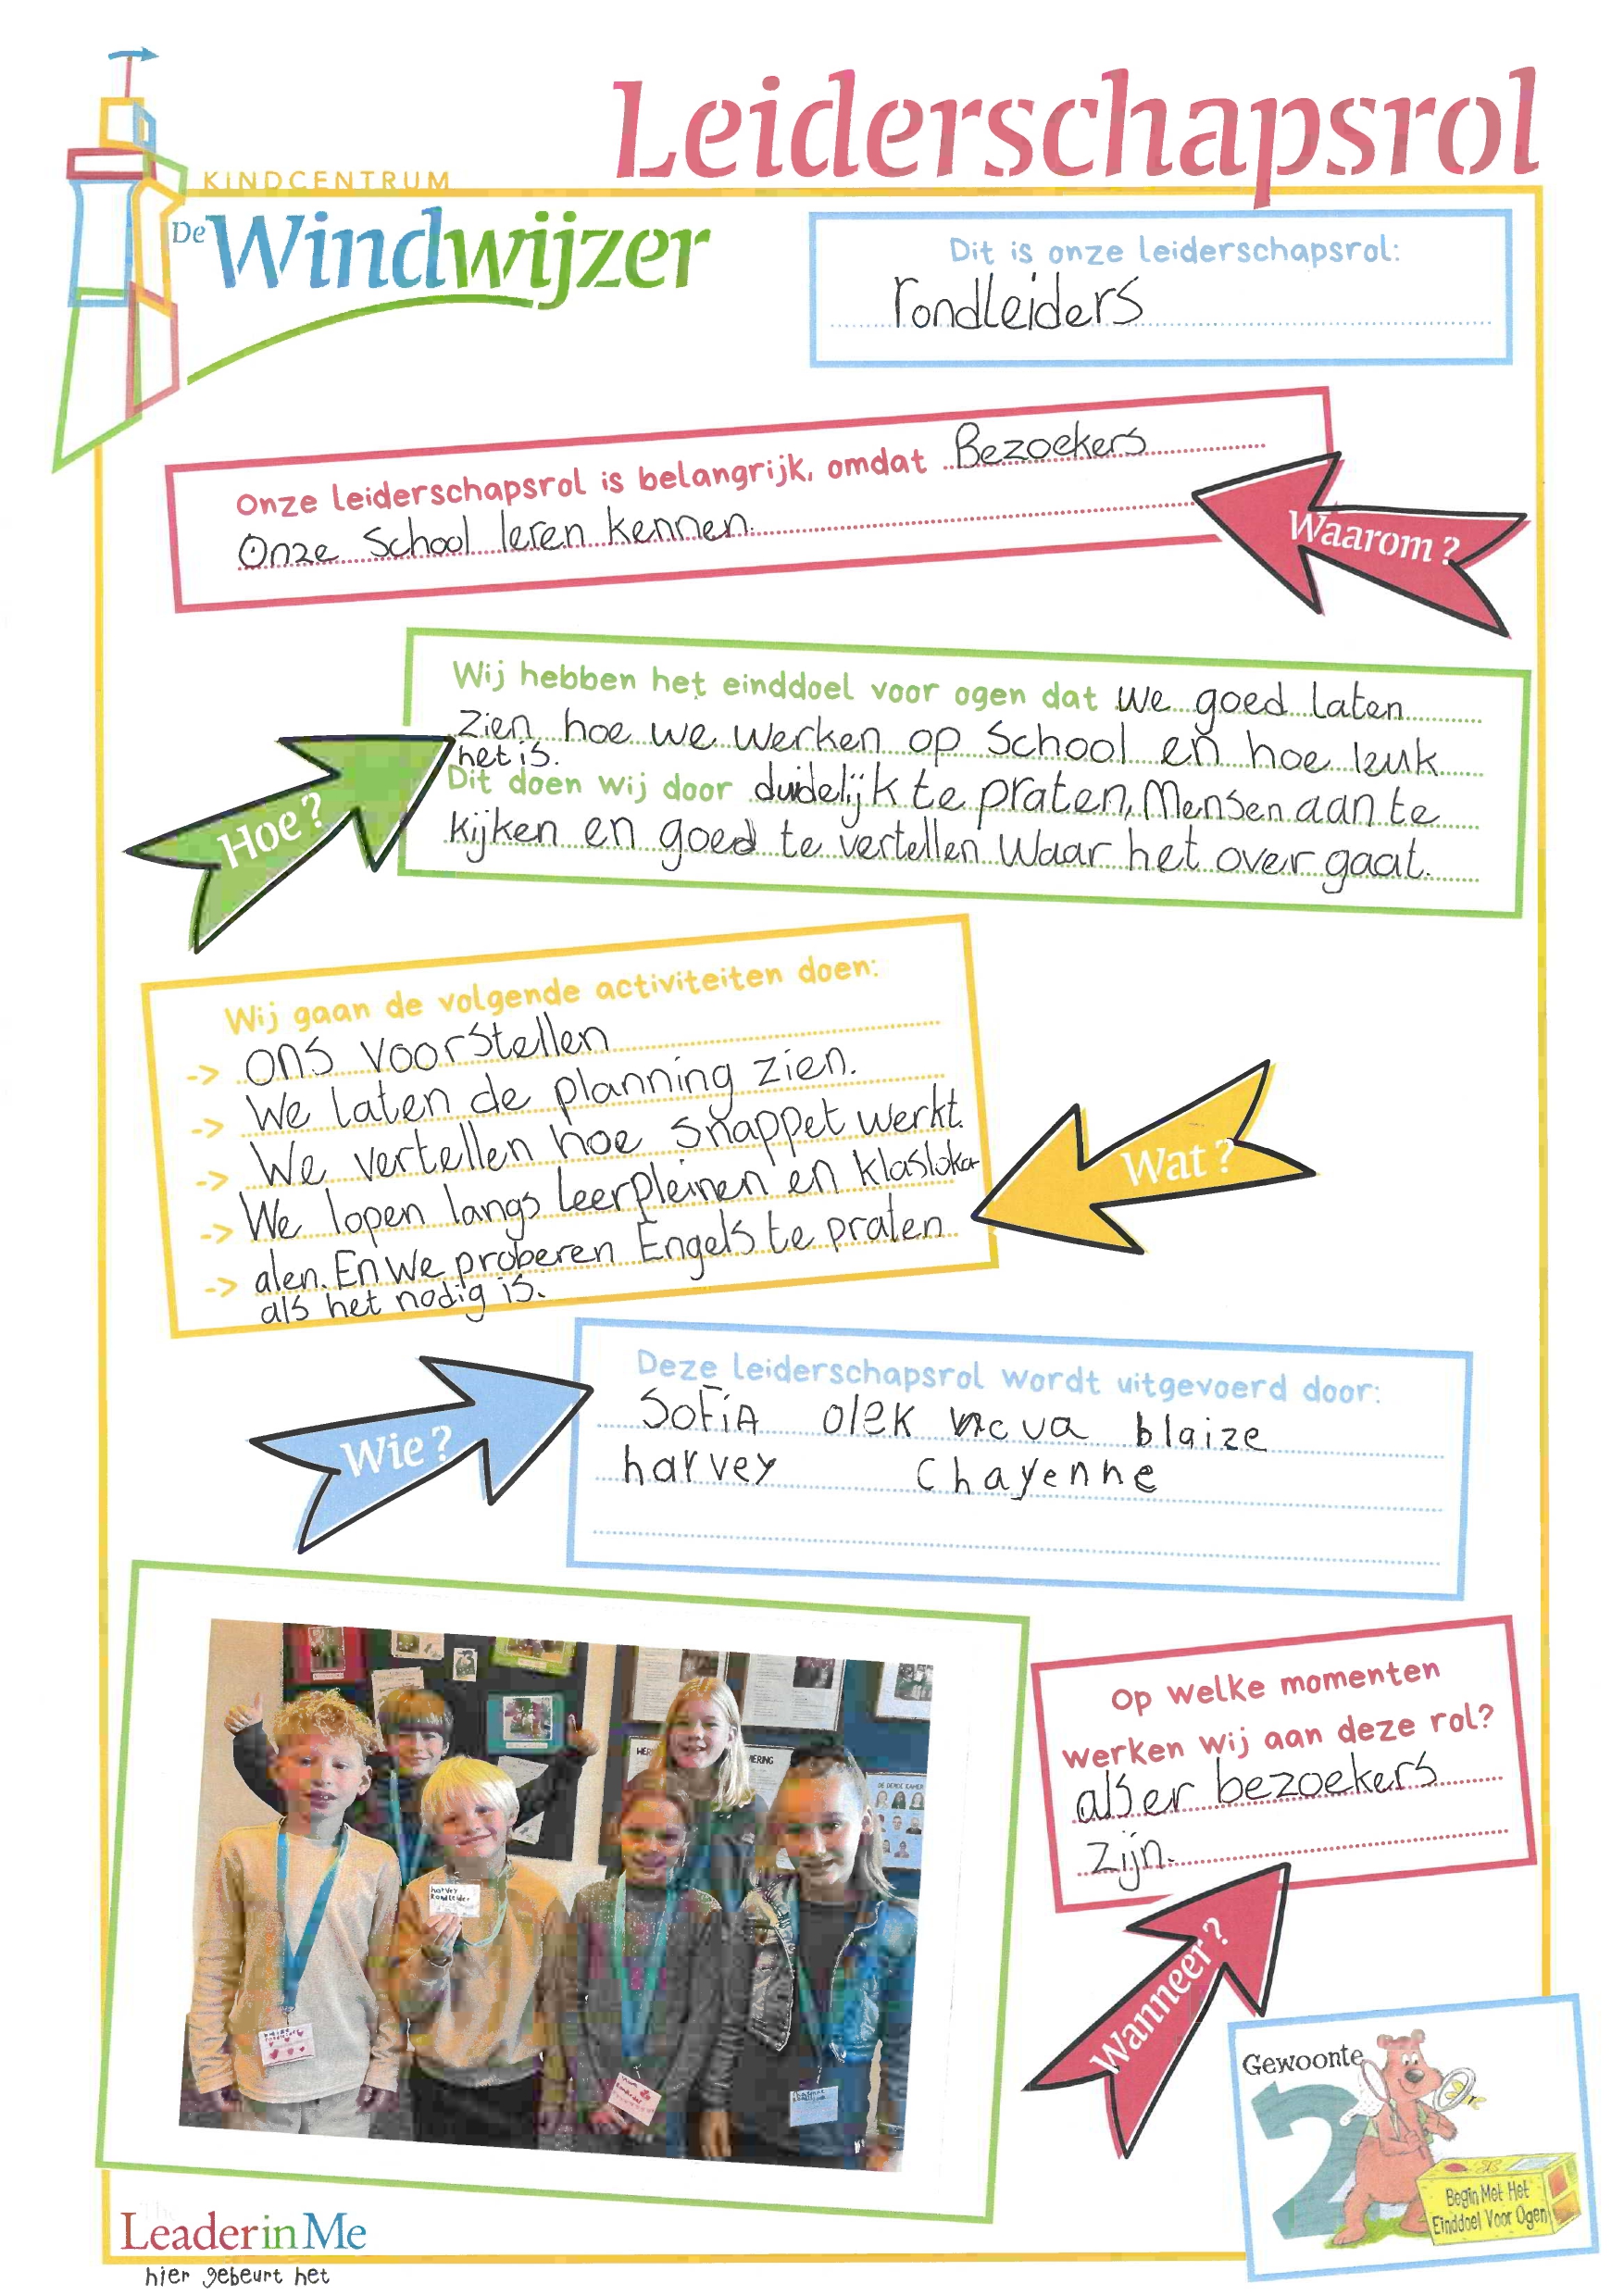 Leiderschapsrol
KINDCENTRUM
De Windwijzer
Dit is onze leiderschapsrol:
rondleiders
Onze leiderschapsrol is belangrijk, omdat Bezoekers
Onze School leren kennen.
Waarom?
Wij hebben het einddoel voor ogen dat we goed laten
zien hoe we werken op School en hoe leuk
het is.
Dit doen wij door duidelijk te praten, Mensen aan te
kijken en goed te vertellen waar het over gaat.
Hoe?
Wij gaan de volgende activiteiten doen:
-> ons voorstellen
-> We laten de planning zien.
-> We vertellen hoe Snappet werkt.
-> We lopen langs leerpleinen en klasloka-
-> alen. En We proberen Engels te praten
als het nodig is.
Wat?
Deze leiderschapsrol wordt uitgevoerd door:
SoFiA olek blaize
harvey Chayenne
Wie?
Op welke momenten
werken wij aan deze rol?
als er bezoekers
zijn.
Wanneer?
harvey
Rondleider
Gewoonte
2
Begin Met Het
Einddoel Voor Ogen
Leader in Me
hier gebeurt het